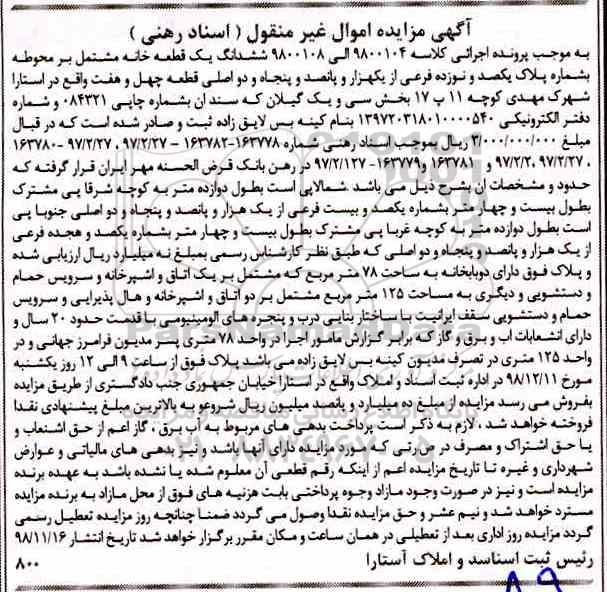 آگهی مزایده اموال غیر منقول ( اسناد رهنی )
به موجب پرونده اجرائی کلاسه ۹۸۰۰۱۰۴ الی ۹۸۰۰۱۰۸ ششدانگ یک قطعه خانه مشتمل بر محوطه
بشماره پلاک یکصد و نوزده فرعی از یکهزار و پانصد و پنجاه و دو اصلی قطعه چهل و هفت واقع در آستارا
شهرک مهدی کوچه ۱۱ پ ۱۷ بخش سی و یک گیلان که سند آن بشماره چاپی ۰۸۴۳۲۱ و شماره
دفتر الکترونیکی ۱۳۹۷۲۰۳۱۸۰۱۰۰۰۰۵۴۰ بنام کینه بس لایق زاده ثبت و صادر شده است که در قبال
مبلغ ۳/۰۰۰/۰۰۰/۰۰۰ ریال بموجب اسناد رهنی شماره ۱۶۳۷۷۸-۹۷/۲/۲۷ – ۱۶۳۷۸۲-۹۷/۲/۲۷ ، ۱۶۳۷۸۰-
۹۷/۲/۲۷ ، ۱۶۳۷۸۱-۹۷/۲/۲ و ۱۶۳۷۷۹-۹۷/۲/۱۲۷ در رهن بانک قرض الحسنه مهر ایران قرار گرفته که
حدود و مشخصات آن بشرح ذیل می باشد .شمالاپی است بطول دوازده متر به کوچه شرقا پی مشترک
بطول بیست و چهار متر بشماره یکصد و بیست فرعی از یک هزار و پانصد و پنجاه و دو اصلی جنوبا پی
است بطول دوازده متر به کوچه غربا پی مشترک بطول بیست و چهار متر بشماره یکصد و هجده فرعی
از یک هزار و پانصد و پنجاه و دو اصلی که طبق نظر کارشناس رسمی بمبلغ نه میلیارد ریال ارزیابی شده
و پلاک فوق دارای دوبابخانه به ساحت ۷۸ متر مربع که مشتمل بر یک اتاق و اشپرخانه و سرویس حمام
و دستشویی و دیگری به مساحت ۱۲۵ متر مربع مشتمل بر دو اتاق و اشپرخانه و هال پذیرایی و سرویس
حمام و دستشویی سقف ایرانیت با ساختار بنایی درب و پنجره های الومینیومی با قدمت حدود ۲۰ سال و
دارای انشعابات اب و برق و گاز که برابر گزارش مامور اجرا در واحد ۷۸ متری پسر مدیون فرامرز جهانی و در
واحد ۱۲۵ متری در تصرف مدیون کینه بس لایق زاده می باشد پلاک فوق از ساعت ۹ الی ۱۲ روز یکشنبه
مورخ ۹۸/۱۲/۱۱ در اداره ثبت اسناد و املاک واقع در آستارا خیابان جمهوری جنب دادگستری از طریق مزایده
بفروش می رسد مزایده از مبلغ ده میلیارد و پانصد میلیون ریال شروعو به بالاترین مبلغ پیشنهادی نقدا
فروخته خواهد شد ، لازم به ذکر است پرداخت بدهی های مربوط به آب برق ، گاز اعم از حق اشتعاب و
یا حق اشتراک و مصرف در صورتی که مورد مزایده دارای آنها باشد و نیز بدهی های مالیاتی و عوارض
شهرداری و غیره تا تاریخ مزایده اعم از اینکه رقم قطعی آن معلوم شده یا نشده باشد به عهده برنده
مزایده است و نیز در صورت وجود مازاد وجوه پرداختی بابت هزنیه های فوق از محل مازاد به برنده مزایده
مسترد خواهد شد و نیم عشر و حق مزایده نقدا وصول می گردد ضمنا چنانچه روز مزایده تعطیل رسمی
گردد مزایده روز اداری بعد از تعطیلی در همان ساعت و مکان مقرر برگزار خواهد شد تاریخ انتشار ۹۸/۱۱/۱۶
رئیس ثبت اسناسد و املاک آستارا ۸۰۰
۸۹